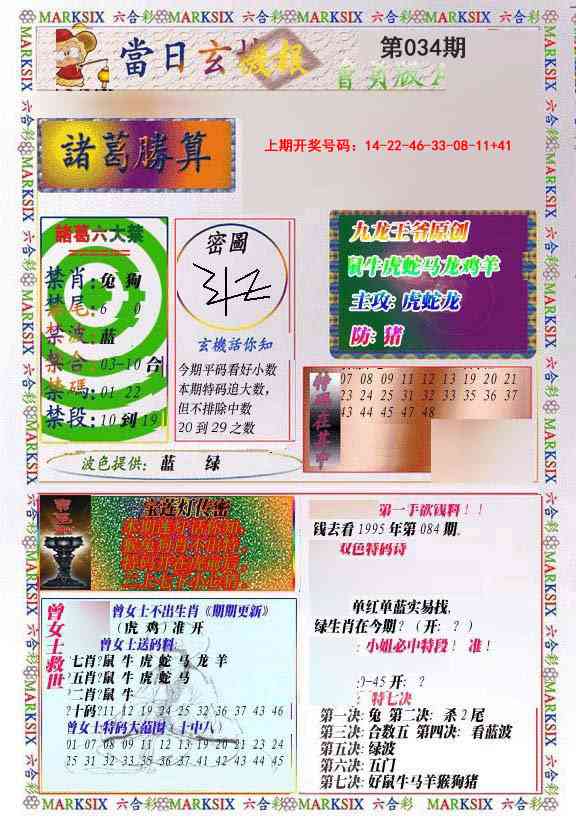 MARKSIX 六合彩 MARKSIX 六合彩 MARKSIX 六合彩 MARKSIX 六合彩
當日玄機報
第034期
諸葛勝算
上期开奖号码：14-22-46-33-08-11+41
諸葛六大禁
禁肖：兔 狗
禁尾：6 0
禁波：蓝
禁合：03-10合
禁碼：01 22
禁段：10到19
密圖
玄機話你知
今期平码看好小数
本期特码追大数，
但不排除中数
20到29之数
九龙王爷原创
鼠牛虎蛇马龙鸡羊
主攻：虎蛇龙
防：猪
07 08 09 11 12 13 19 20 21
23 24 25 31 32 33 35 36 37
43 44 45 47 48
波色提供：蓝 绿
宝莲灯传密
第一手欲钱料！！
钱去看1995年第084期。
双色特码诗
单红单蓝实易找，
绿生肖在今期？（开：？）
：小姐必中特段！准！
9-45开：？
特七决
第一决：兔 第二决：杀2尾
第三决：合数五 第四决：看蓝波
第五决：绿波
第六决：五门
第七决：好鼠牛马羊猴狗猪
曾女士救世
曾女士不出生肖《期期更新》
（虎 鸡）准开
曾女士送码料
七肖?鼠 牛 虎 蛇 马 龙 羊
五肖?鼠 牛 虎 蛇 马
二肖?鼠 牛
?十码?11 12 19 24 25 32 36 37 43 46
曾女士特码大范围（十中八）
01 07 08 09 11 12 13 19 20 21 23 24
25 31 32 33 35 36 37 43 44 45 47 48
MARKSIX 六合彩 MARKSIX 六合彩 MARKSIX 六合彩 MARKSIX 六合彩